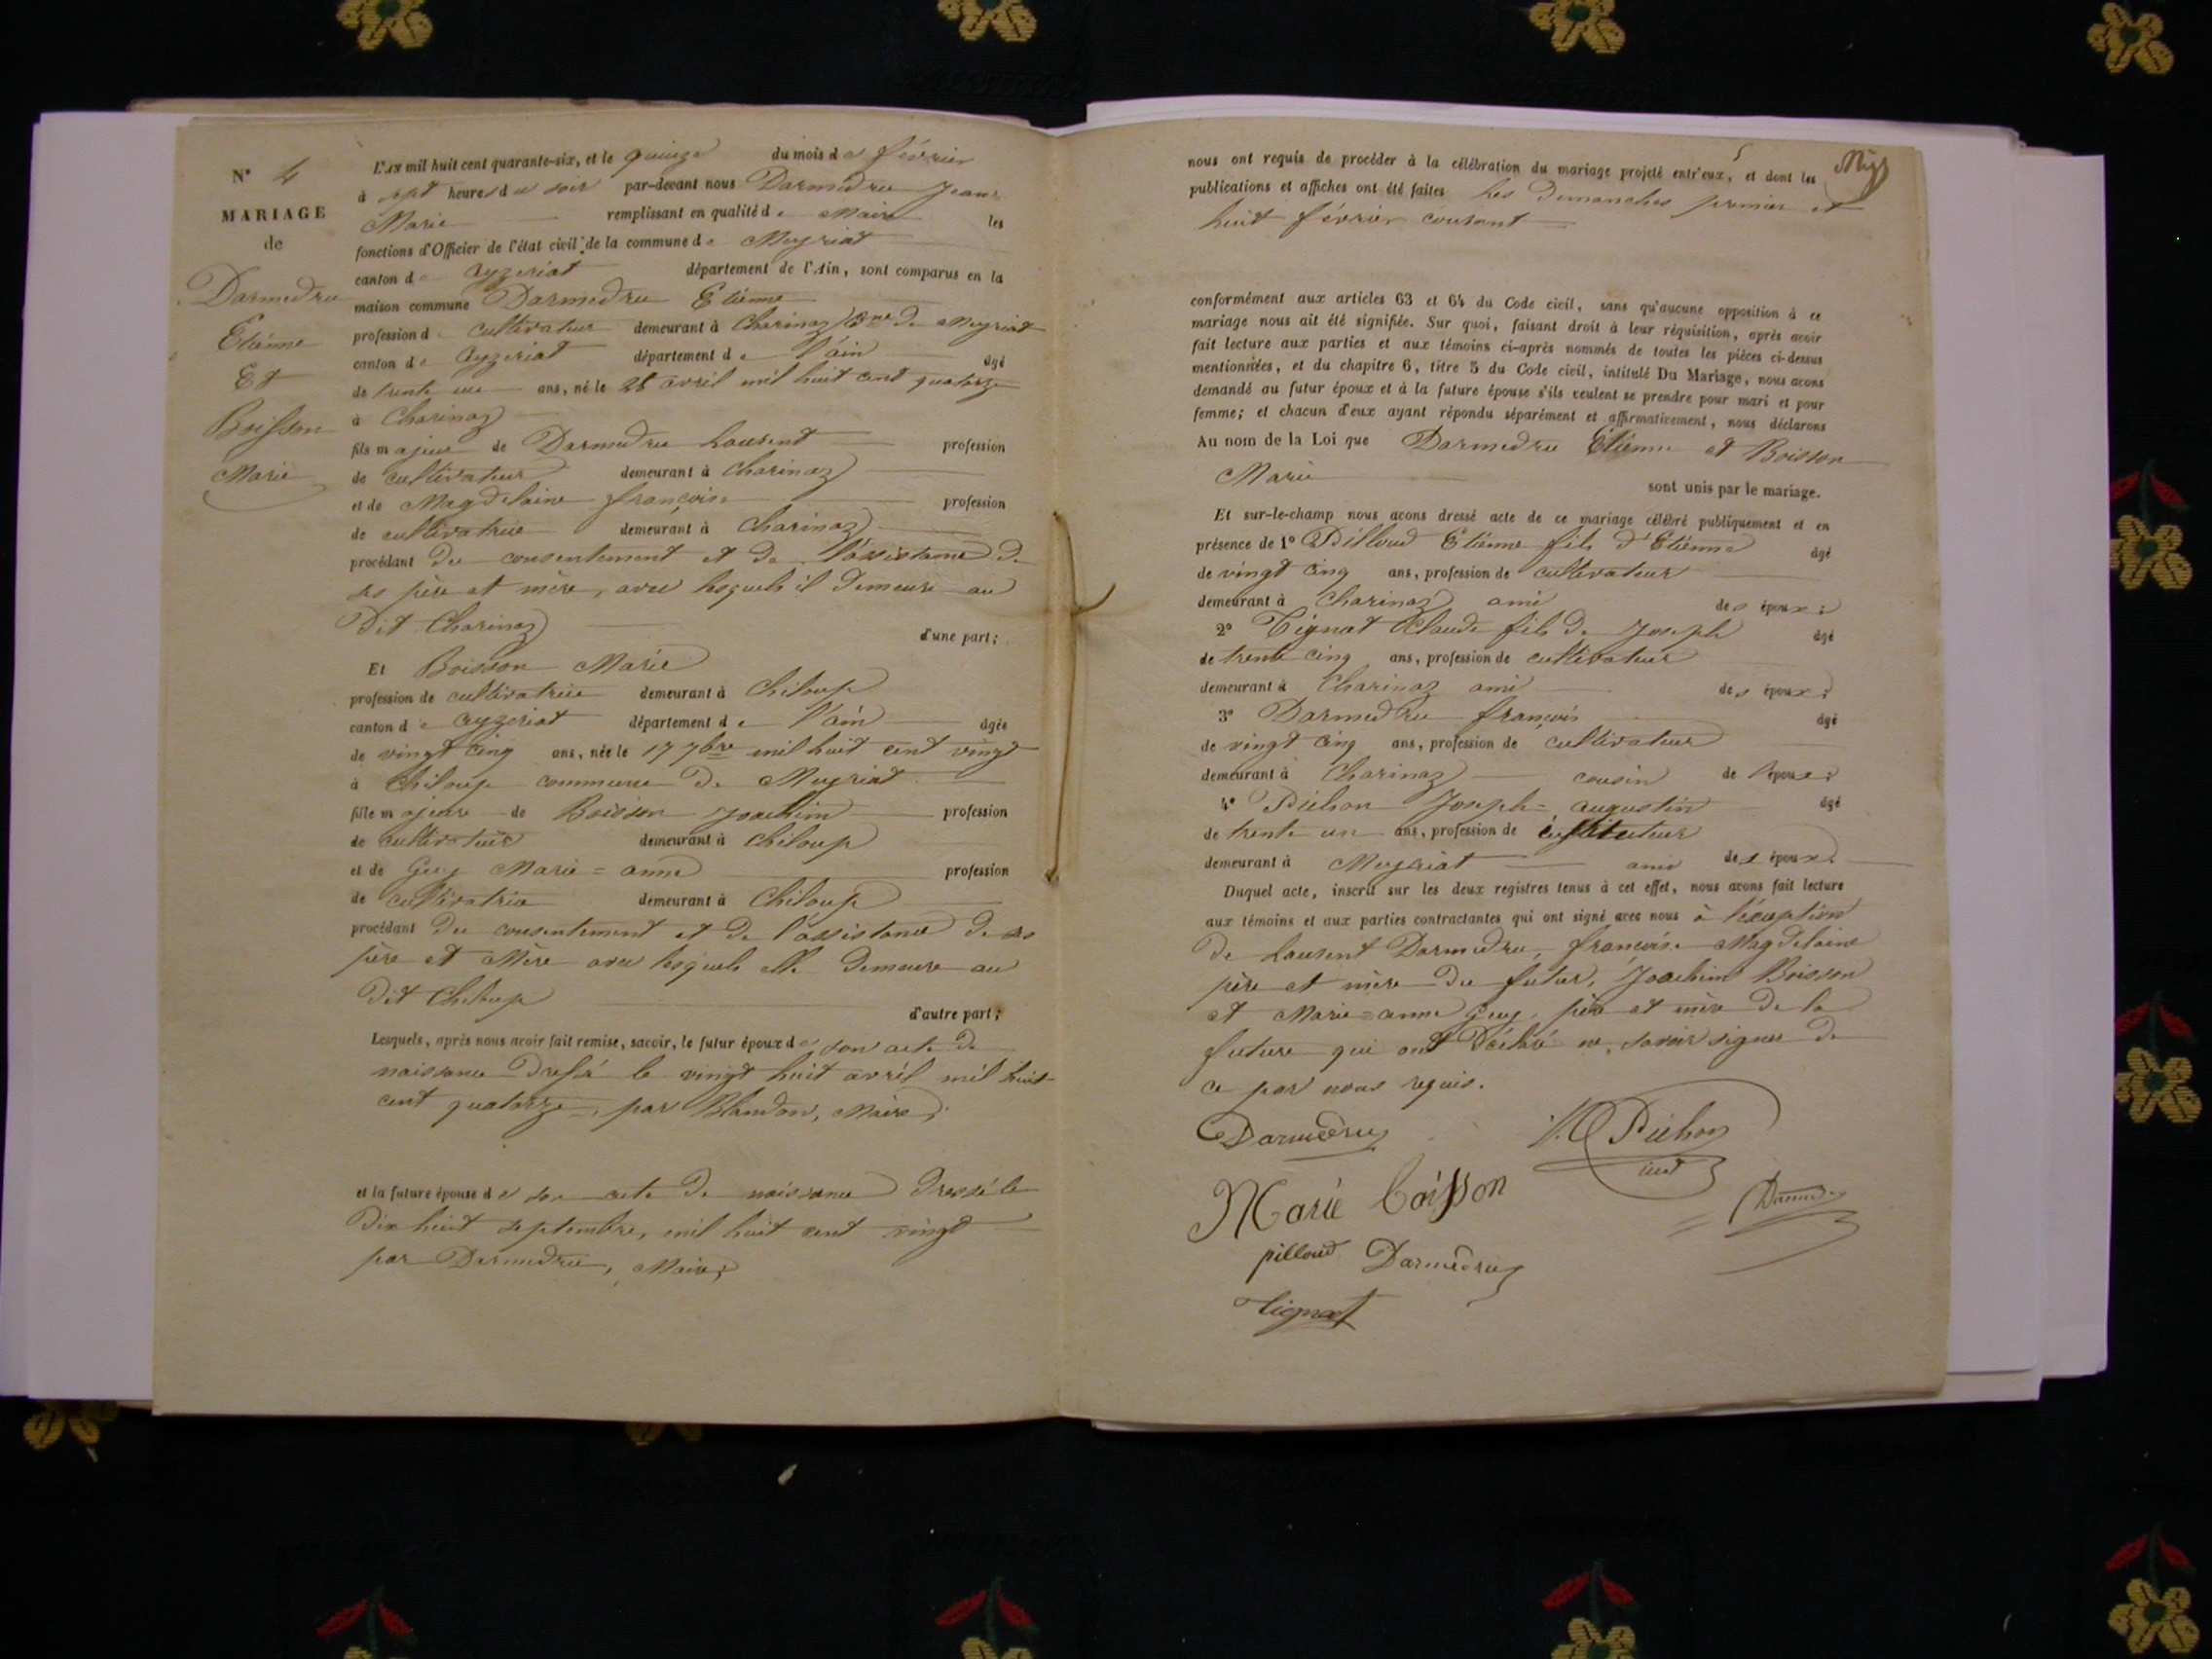 N° 4
MARIAGE
de
Darmedru
Etiénne
Et
Boisson
Marie
L'AN mil huit cent quarante-six, et le quinze du mois de février
à sept heures du soir par-devant nous Darmedru Jean
Marie remplissant en qualité de Maire les
fonctions d'Officier de l'état civil de la commune de Meyriat
canton de Ceyzeriat département de l'Ain, sont comparus en la
maison commune Darmedru Etiénne
profession de cultivateur demeurant à Charinaz Cne de Meyriat
canton de Ceyzeriat département de l'ain âgé
de trente un ans, né le 28 avril mil huit cent quatorze
à Charinaz
fils majeur de Darmedru Laurent profession
de cultivateur demeurant à Charinaz
et de Magdelaine françoise profession
de cultivatrice demeurant à Charinaz
procédant du consentement et de l'assistance de
ses père et mère, avec lesquels il demeure au
Dit Charinaz d'une part;
Et Boisson Marie
profession de cultivatrice demeurant à Chiloup
canton de Ceyzeriat département de l'ain âgée
de vingt cinq ans, née le 17 7bre mil huit cent vingt
à Chiloup commune de Meyriat
fille majeure de Boisson Joachim profession
de cultivateur demeurant à Chiloup
et de Guy Marie=anne profession
de cultivatrice demeurant à Chiloup
procédant du consentement et de l'assistance de ses
père et Mère avec lesquels elle demeure au
Dit Chiloup
d'autre part;
Lesquels, après nous avoir fait remise, savoir, le futur époux de son acte de
naissance Dressé le vingt huit avril mil huit
cent quatorze, par Blandon, Maire;
et la future épouse de son acte de naissance Dressé le
Dix huit septembre, mil huit cent vingt
par Darmedru, Maire;
5
nous ont requis de procéder à la célébration du mariage projeté entr'eux, et dont les
publications et affiches ont été faites Les Dimanches premier et
huit février courant
conformément aux articles 63 et 64 du Code civil, sans qu'aucune opposition à ce
mariage nous ait été signifiée. Sur quoi, faisant droit à leur réquisition, après avoir
fait lecture aux parties et aux témoins ci-après nommés de toutes les pièces ci-dessus
mentionnées, et du chapitre 6, titre 5 du Code civil, intitulé Du Mariage, nous avons
demandé au futur époux et à la future épouse s'ils veulent se prendre pour mari et pour
femme; et chacun d'eux ayant répondu séparément et affirmativement, nous déclarons
Au nom de la Loi que Darmedru Etiénne et Boisson
Marie sont unis par le mariage.
Et sur-le-champ nous avons dressé acte de ce mariage célébré publiquement et en
présence de 1° Pilloud Etiénne fils d'Etiénne âgé
de vingt cinq ans, profession de cultivateur
demeurant à Charinaz ami des époux;
2° Tignat Claude fils de Joseph âgé
de trente cinq ans, profession de cultivateur
demeurant à Charinaz ami des époux;
3° Darmedru françois âgé
de vingt cinq ans, profession de cultivateur
demeurant à Charinaz cousin de l'époux;
4° Piéhon Joseph=augustin âgé
de trente un ans, profession de instituteur
demeurant à Meyriat ami des époux.
Duquel acte, inscrit sur les deux registres tenus à cet effet, nous avons fait lecture
aux témoins et aux parties contractantes qui ont signé avec nous à l'exception
de Laurent Darmedru, françoise Magdelaine
père et mère du futur, Joachim Boisson
et Marie=anne Guy, père et mère de la
future qui ont Déclaré ne savoir signer de
ce par nous requis.
Darmedru
Piéhon
inst
Marie Boisson
Darmedru
pilloud Darmedru
tignat